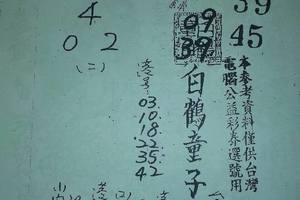 39
45
本參考資料僅供台灣
電腦公益彩券選號用
09
39
白鶴童子
4
02
(二)
03.
10.
18.
22.
35.
42
(2)